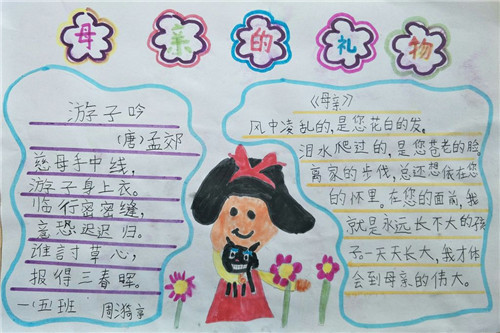 母亲的礼物
游子吟
(唐)孟郊
慈母手中线，
游子身上衣。
临行密密缝，
意恐迟迟归。
谁言寸草心，
报得三春晖。
一(五)班 周
《母亲》
风中凌乱的，是您花白的发。
泪水爬过的，是您苍老的脸。
离家的步伐，总还想依在您
的怀里。在您的面前，我
就是永远长不大的孩
子。一天天长大，我才体
会到母亲的伟大。